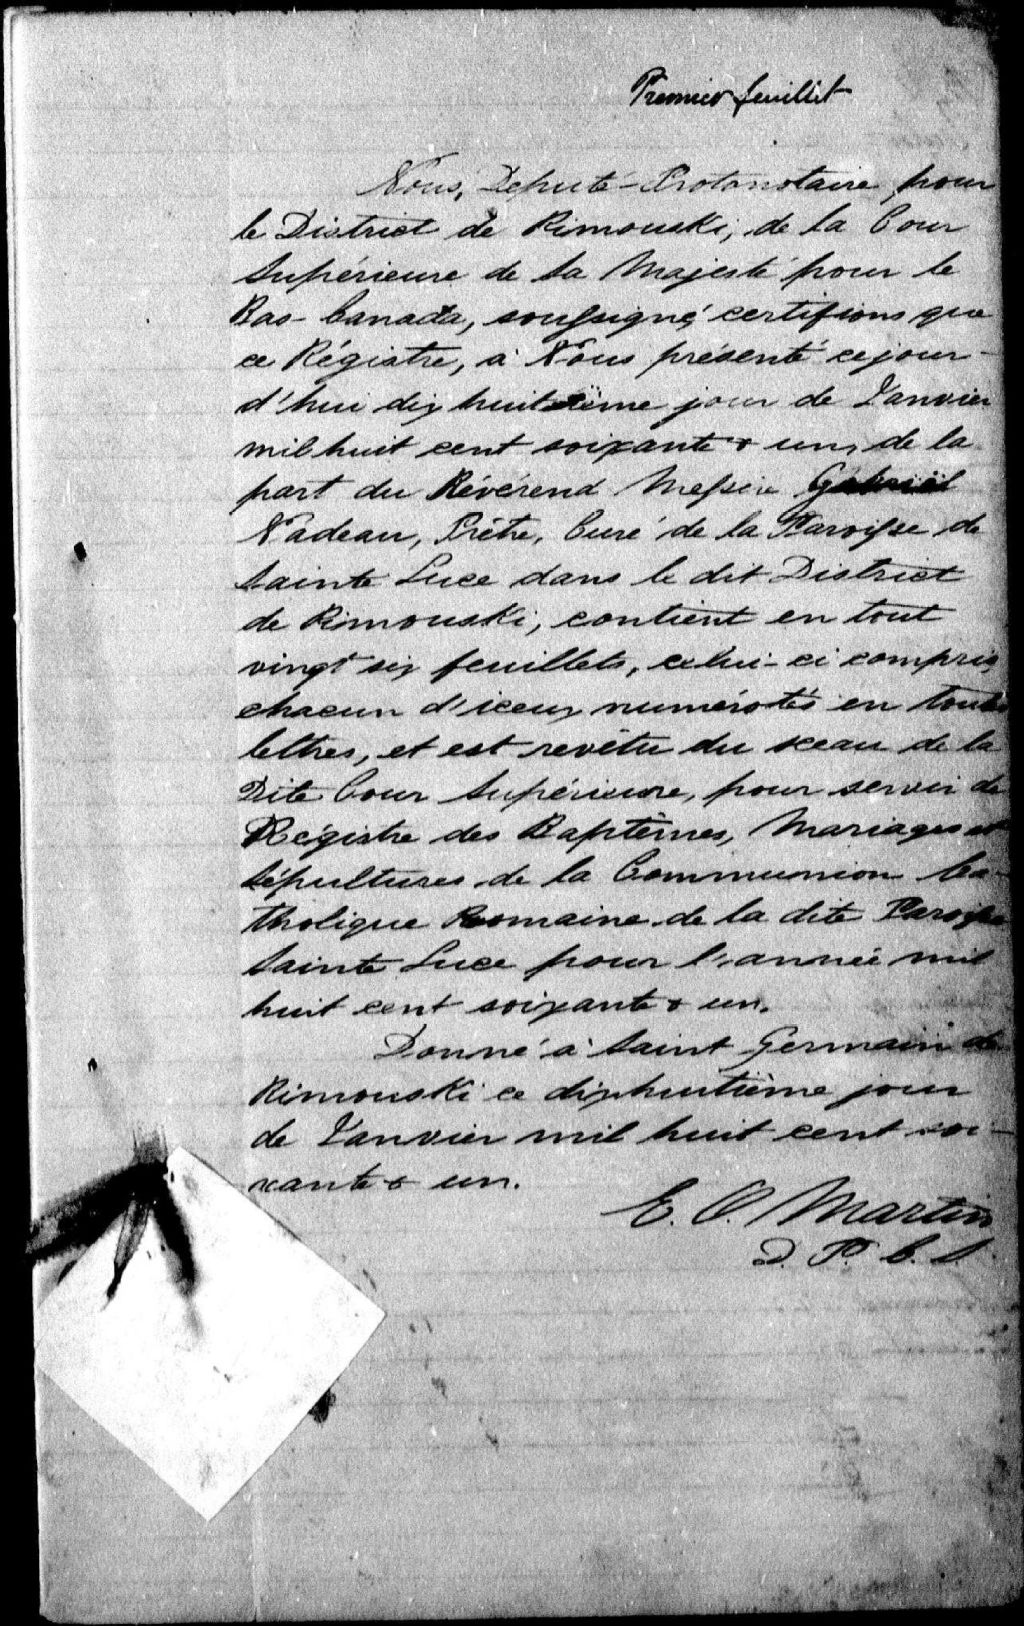 Premier feuillet
Nous, Député-Protonotaire, pour
le District de Rimouski, de la Cour
Supérieure de Sa Majesté pour le
Bas-Canada, soussigné, certifions que
ce Régistre, à Nous présenté cejour-
d'hui dix huitième jour de Janvier
mil huit cent soixante & un, de la
part du Révérend Messire Gabriël
Nadeau, Prêtre, Curé de la Paroisse de
Sainte Luce dans le dit District
de Rimouski, contient en tout
vingt six feuillets, celui-ci compris,
chacun d'iceux numérotés en toutes
lettres, et est revêtu du sceau de la
Dite Cour Supérieure, pour servir de
Régistre des Baptêmes, Mariages et
Sépultures de la Communion Ca-
tholique Romaine de la dite Paroisse
Sainte Luce pour l'année mil
huit cent soixante & un.
Donné à Saint Germain de
Rimouski ce dixhuitième jour
de Janvier mil huit cent soi-
xante & un.
E. O. Martin
D. P. C. S.